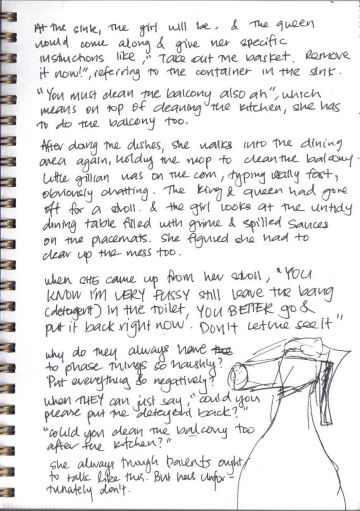 At the sink, the girl will be. & the queen
would come along & give her specific
instructions like, "Take out the basket. Remove
it now!", referring to the container in the sink.
"You must clean the balcony also ah", which
means on top of cleaning the kitchen, she has
to do the balcony too.
After doing the dishes, she walks into the dining
area again, holding the mop to clean the balcony.
Little gillian was on the com, typing really fast,
obviously chatting. The king & queen had gone
off for a stroll. & the girl looks at the untidy
dining table filled with grime & spilled sauces
on the placemats. She figured she had to
clear up the mess too.
When SHE came up from her stroll, "YOU
KNOW I'M VERY FUSSY still leave the
(detergent) in the toilet, YOU BETTER go &
put it back right now. Don't let me see it"
Why do they always have
to phrase things so harshly?
Put everything so negatively?
When THEY can just say, "could you
please put the detergent back?"
"Could you clean the balcony too
after the kitchen?"
She always though parents ought
to talk like this. But hers unfor-
tunately don't.